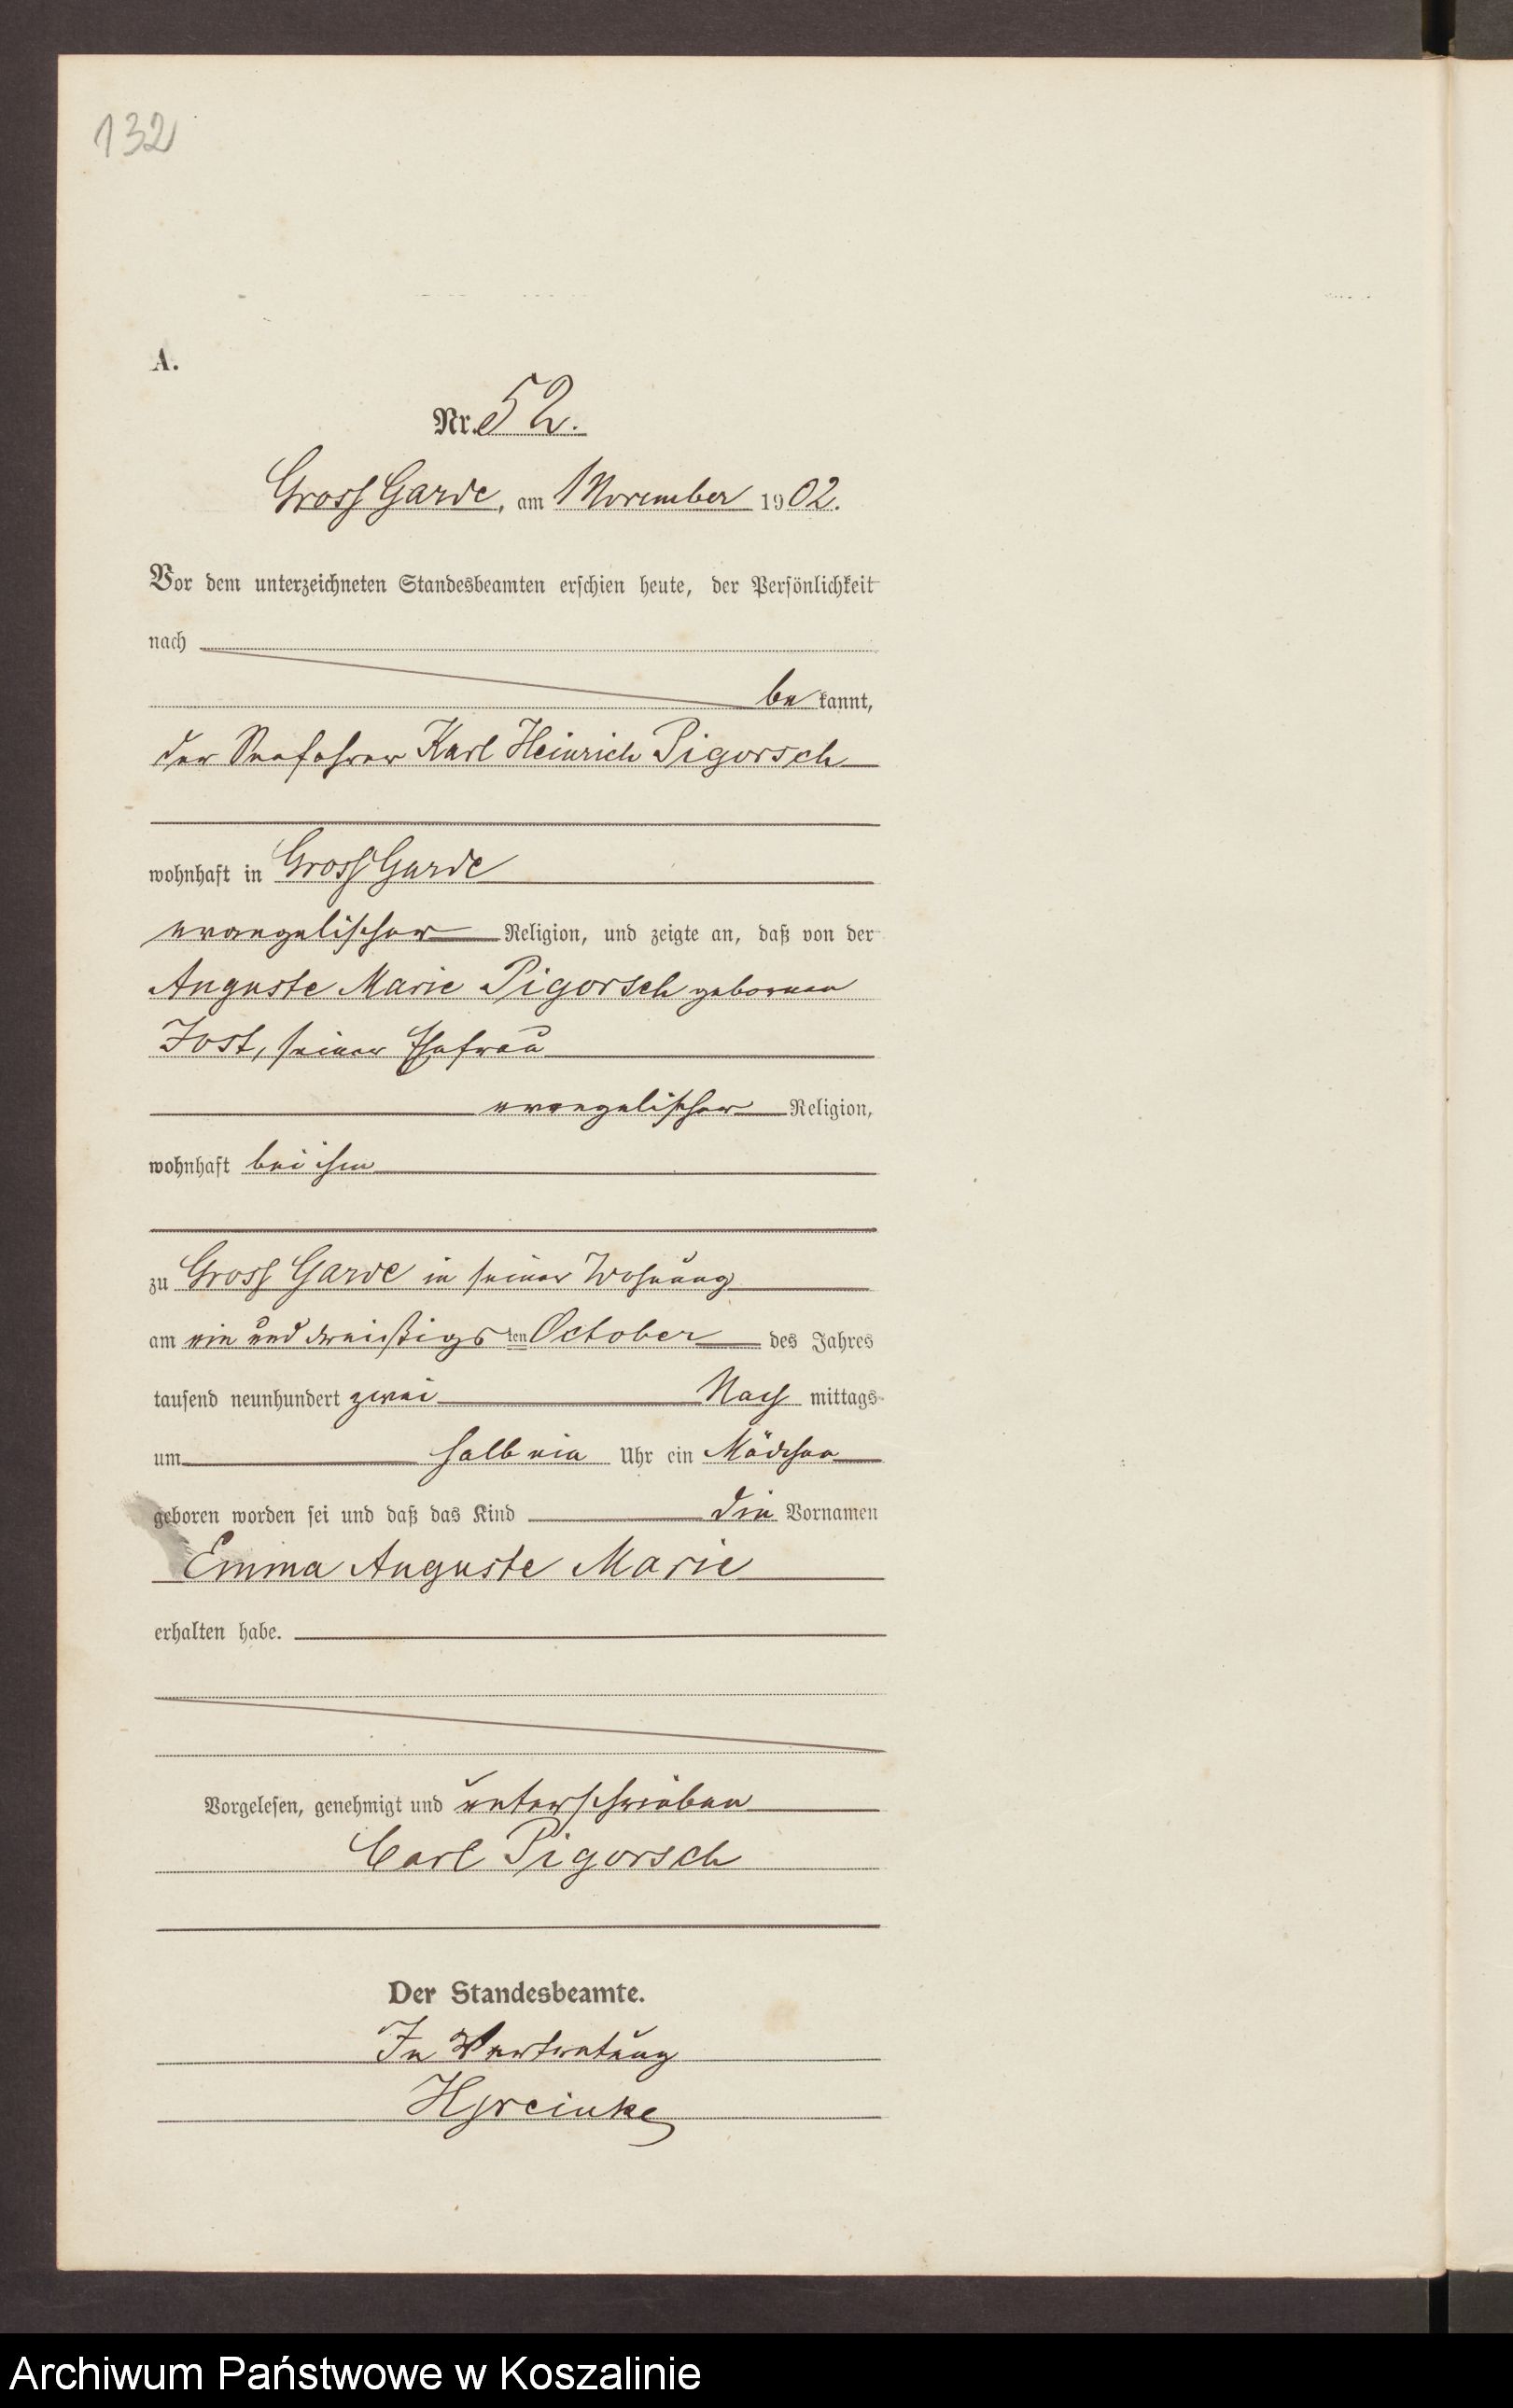 132
A.
Nr. 52.
Gross Garde, am 1 November 1902.
Vor dem unterzeichneten Standesbeamten erschien heute, der Persönlichkeit
nach
be kannt,
der Seefahrer Karl Heinrich Pigorsch
wohnhaft in Gross Garde
evangelischer Religion, und zeigte an, daß von der
Auguste Marie Pigorsch gebornen
Jost, seiner Ehefrau
evangelischer Religion,
wohnhaft bei ihm
zu Gross Garde in seiner Wohnung
am ein und dreißigs ten October des Jahres
tausend neunhundert zwei Nach mittags
um halb ein Uhr ein Mädchen
geboren worden sei und daß das Kind die Vornamen
Emma Auguste Marie
erhalten habe.
Vorgelesen, genehmigt und unterschrieben
Carl Pigorsch
Der Standesbeamte.
In Vertretung
Archiwum Państwowe w Koszalinie